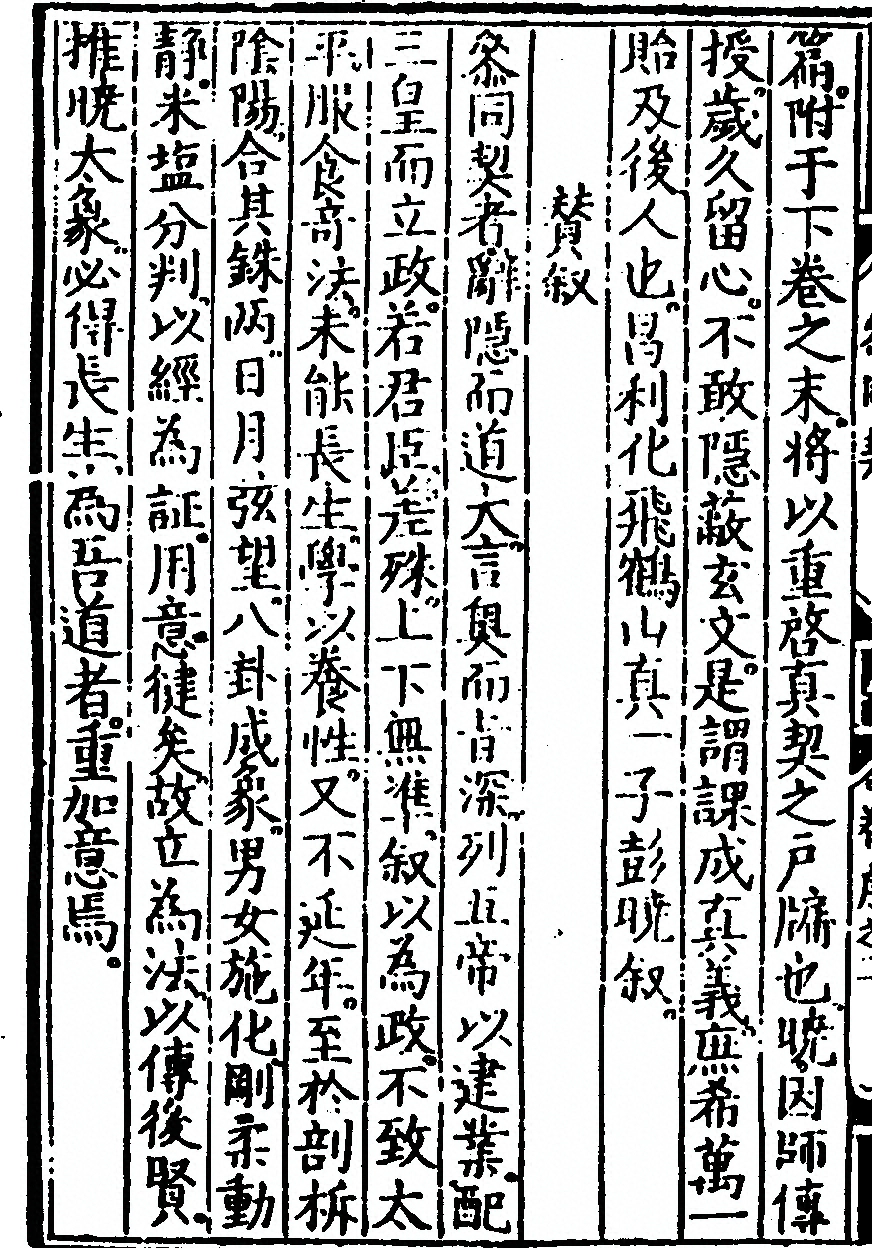 篇附于下卷之末將以重啓真契之戶牖也曉因師傳
授歲久留心不敢隱蔽玄文是謂課成真義庶希萬一
貽及後人也昌利化飛鶴山真一子彭曉叙
賛叙
叅同契者辭隱而道大言奥而旨深列五帝以建業配
三皇而立政若君臣差殊上下無準叙以為政不致太
平服食竒法未能長生學以養性又不延年至於剖柝
陰陽合其銖兩日月弦望八卦成象男女施化剛柔動
静米塩分判以經為証用意健矣故立為法以傳後賢
推曉太象必得長生為吾道者重如意焉